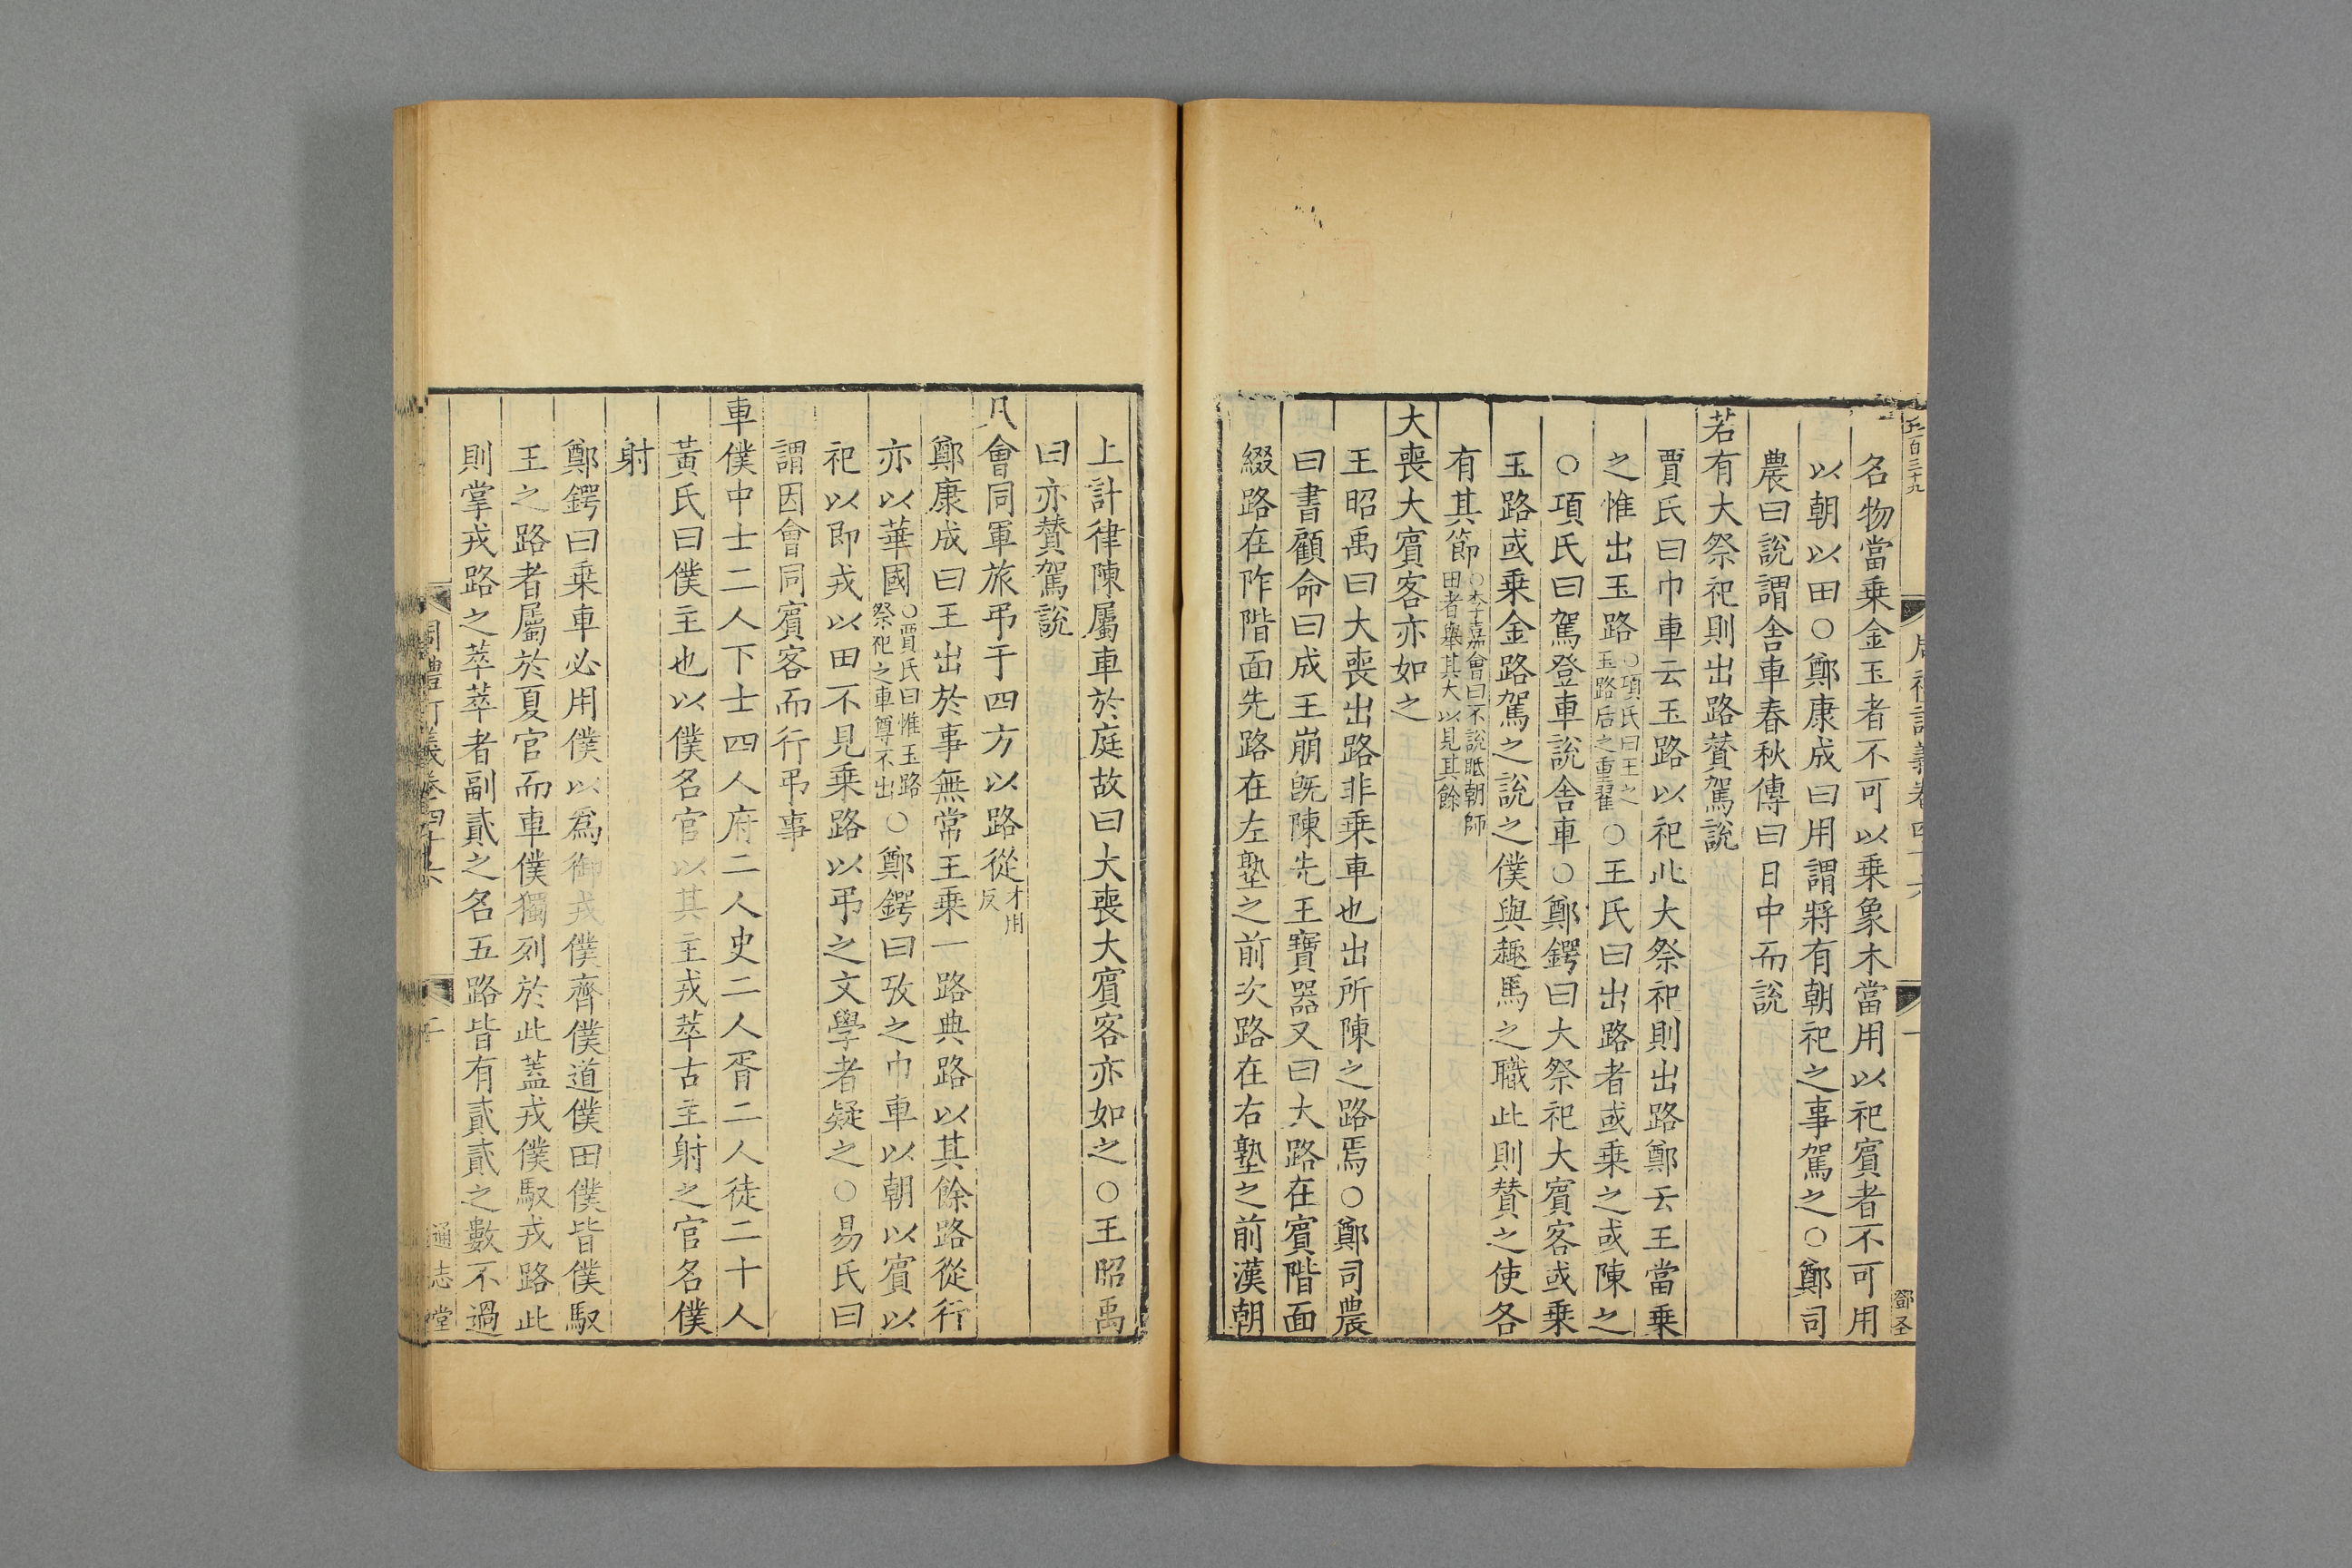 五百三十九
周禮訂義卷四十六
一
鄧圣
名物當乘金玉者不可以乘象木當用以祀賓者不可用
以朝以田○鄭康成曰用謂將有朝祀之事駕之○鄭司
農曰說謂舍車春秋傳曰日中而說
若有大祭祀則出路贊駕說
賈氏曰巾車云玉路以祀此大祭祀則出路鄭云王當乘
之惟出玉路○項氏曰王之玉路后之重翟○王氏曰出路者或乘之或陳之
○項氏曰駕登車說舍車○鄭鍔曰大祭祀大賓客或乘
玉路或乘金路駕之說之僕與趣馬之職此則贊之使各
有其節○李嘉會曰不說眡朝師田者舉其大以見其餘
大喪大賓客亦如之
王昭禹曰大喪出路非乘車也出所陳之路焉○鄭司農
曰書顧命曰成王崩旣陳先王寶器又曰大路在賓階面
綴路在阼階面先路在左塾之前次路在右塾之前漢朝
上計律陳屬車於庭故曰大喪大賓客亦如之○王昭禹
曰亦贊駕說
凡會同軍旅弔于四方以路從才用反
鄭康成曰王出於事無常王乘一路典路以其餘路從行
亦以華國○賈氏曰惟玉路祭祀之車尊不出○鄭鍔曰攷之巾車以朝以賓以
祀以即戎以田不見乘路以弔之文學者疑之○易氏曰
謂因會同賓客而行弔事
車僕中士二人下士四人府二人史二人胥二人徒二十人
黃氏曰僕主也以僕名官以其主戎萃古主射之官名僕
射
鄭鍔曰乘車必用僕以爲御戎僕齊僕道僕田僕皆僕馭
王之路者屬於夏官而車僕獨列於此蓋戎僕馭戎路此
則掌戎路之萃萃者副貳之名五路皆有貳貳之數不過
周禮訂義卷四十六
二
通志堂